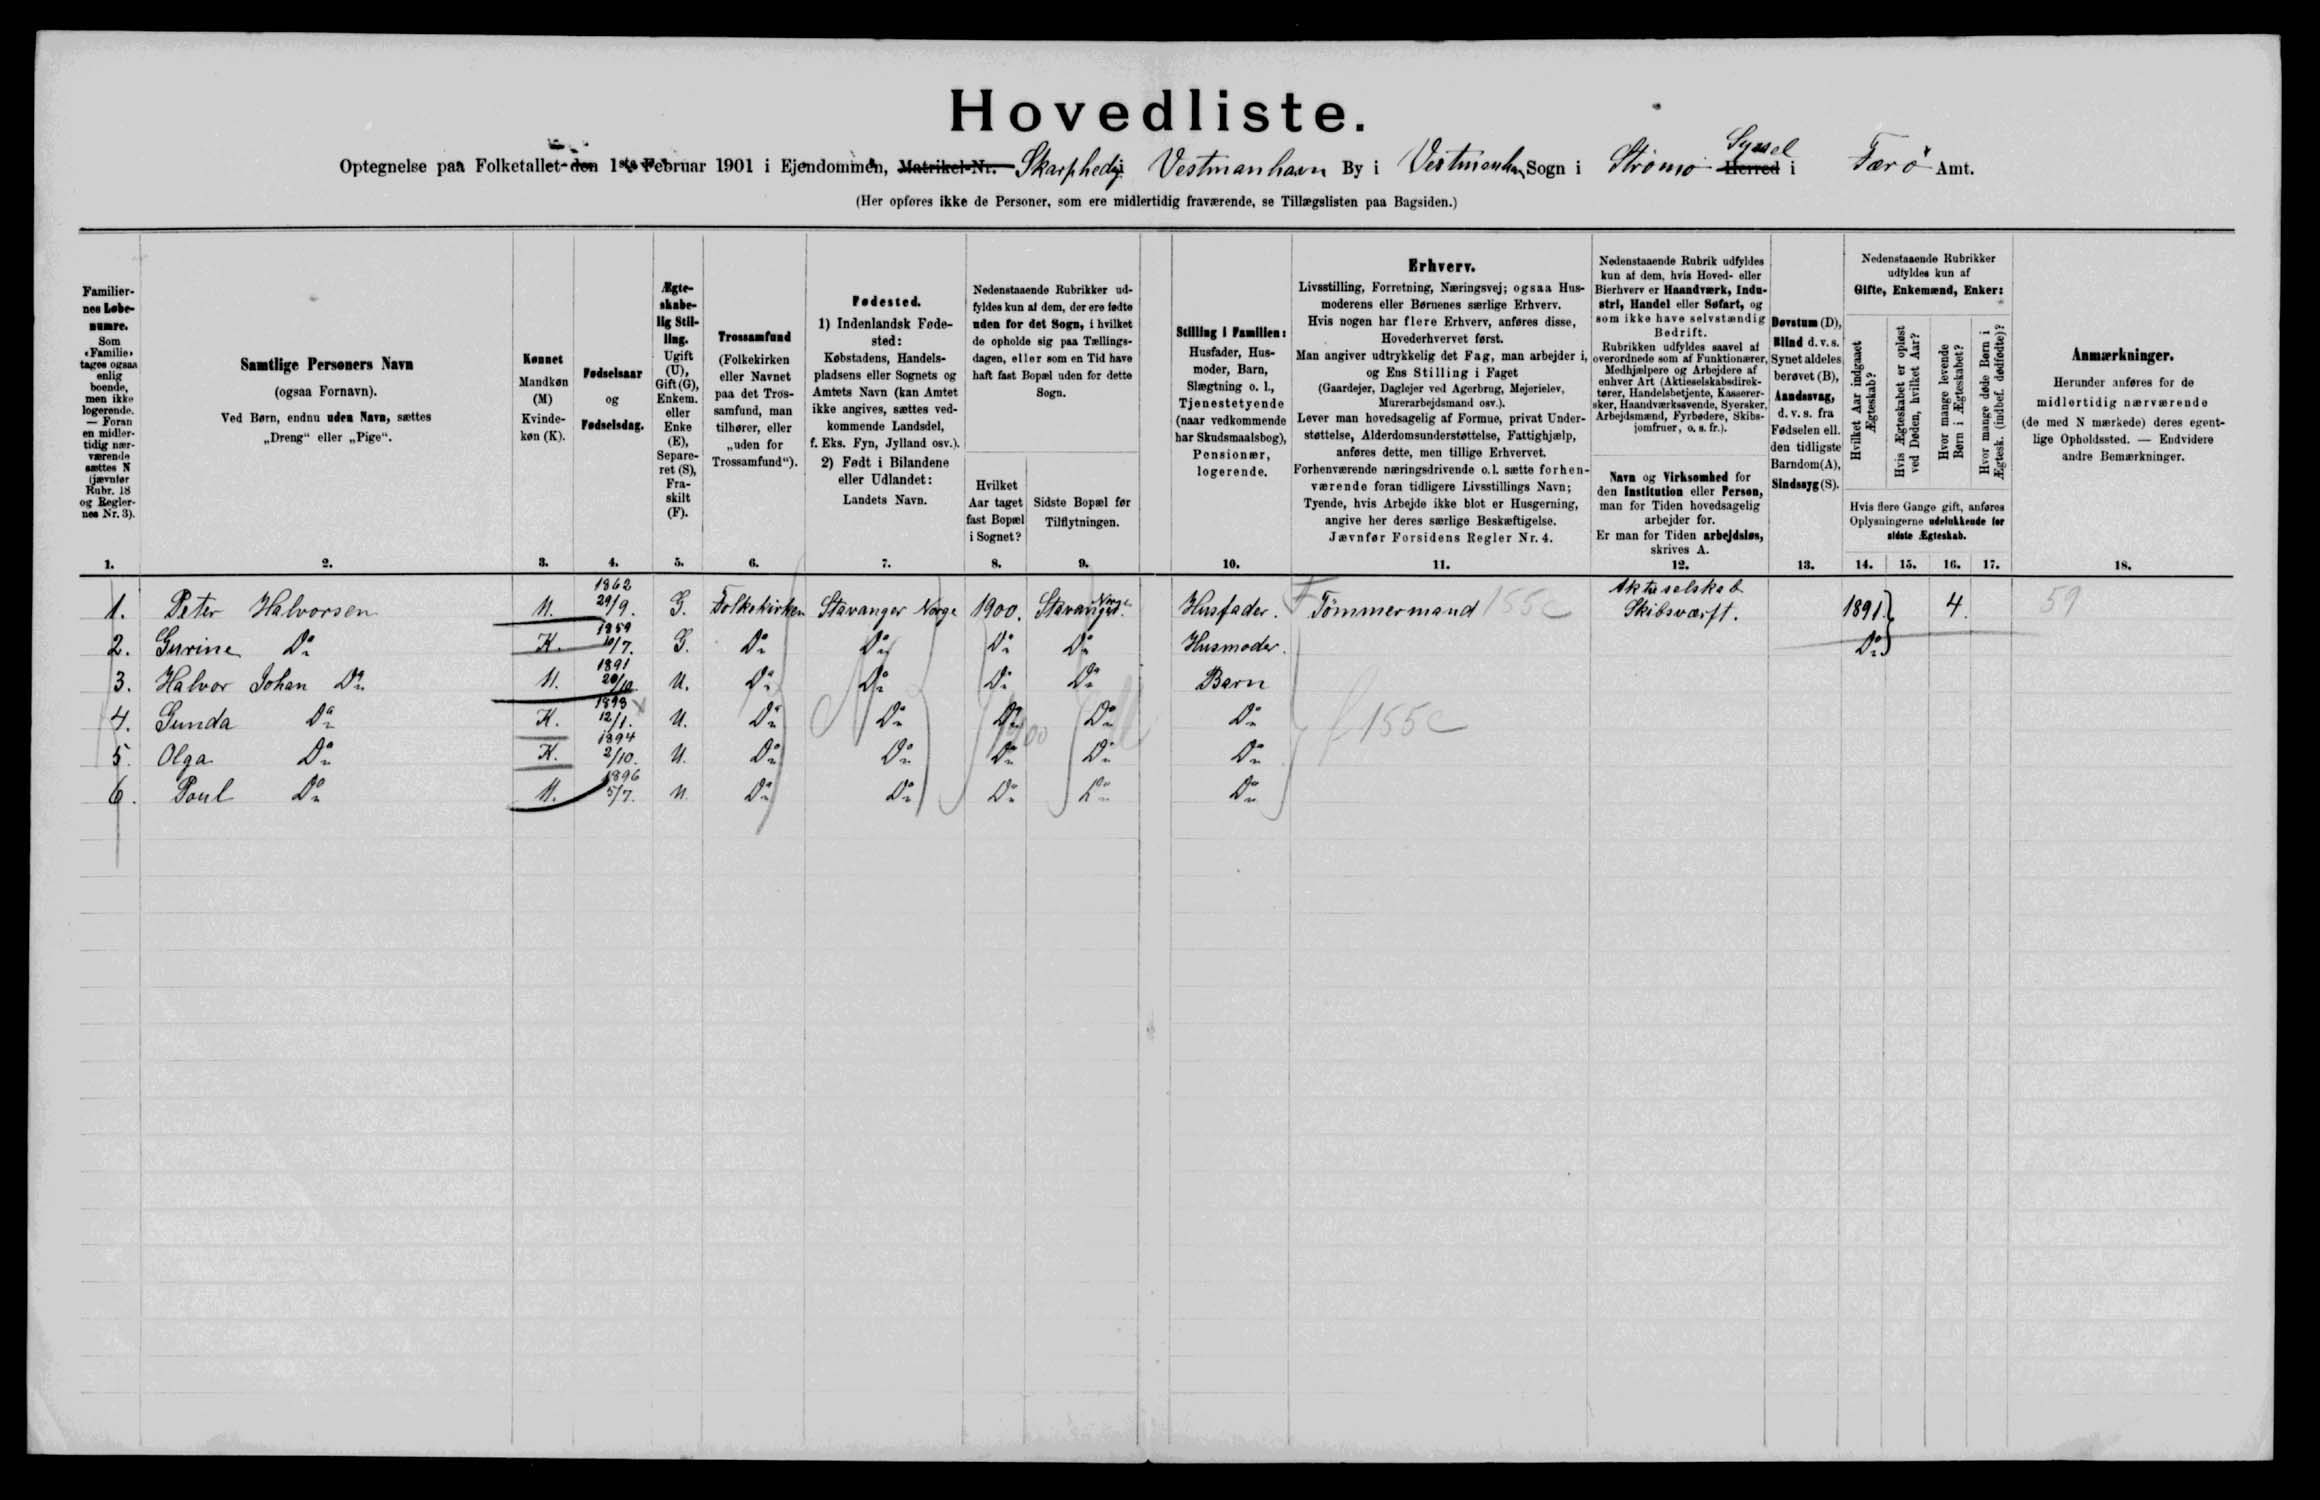 Hovedliste.
Optegnelse paa Folketallet den 1ste Februar 1901 i Ejendommen, Matrikel-Nr. Vestmanhavn By i Sogn i Strømø Herred Syssel i Færø Amt.
(Her opføres ikke de Personer, som ere midlertidig fraværende, se Tillægslisten paa Bagsiden.)
Familiernes Løbenumre.
Som «Familie» tages ogsaa enlig boende, men ikke logerende. — Foran en midlertidig nærværende sættes N (jævnfør Rubr. 18 og Reglernes Nr. 3).
Samtlige Personers Navn
(ogsaa Fornavn).
Ved Børn, endnu uden Navn, sættes
„Dreng" eller „Pige".
Kønnet
Mandkøn (M)
Kvindekøn (K).
Fødselsaar
og
Fødselsdag.
Ægteskabelig Stilling.
Ugift (U), Gift (G), Enkem. eller Enke (E), Separeret (S), Fraskilt (F).
Trossamfund
(Folkekirken eller Navnet paa det Trossamfund, man tilhører, eller „uden for Trossamfund").
Fødested.
1) Indenlandsk Fødested:
Købstadens, Handelspladsens eller Sognets og Amtets Navn (kan Amtet ikke angives, sættes vedkommende Landsdel, f. Eks. Fyn, Jylland osv.).
2) Født i Bilandene eller Udlandet:
Landets Navn.
Nedenstaaende Rubrikker udfyldes kun af dem, der ere fødte uden for det Sogn, i hvilket de opholde sig paa Tællingsdagen, eller som en Tid have haft fast Bopæl uden for dette Sogn.
Hvilket Aar taget fast Bopæl i Sognet?
Sidste Bopæl før Tilflytningen.
Stilling i Familien:
Husfader, Husmoder, Barn, Slægtning o. l., Tjenestetyende (naar vedkommende har Skudsmaalsbog), Pensionær, logerende.
Erhverv.
Livsstilling, Forretning, Næringsvej; ogsaa Husmoderens eller Børnenes særlige Erhverv.
Hvis nogen har flere Erhverv, anføres disse, Hovederhvervet først.
Man angiver udtrykkelig det Fag, man arbejder i, og Ens Stilling i Faget
(Gaardejer, Daglejer ved Agerbrug, Mejerielev, Murerarbejdsmand osv.).
Lever man hovedsagelig af Formue, privat Understøttelse, Alderdomsunderstøttelse, Fattighjælp, anføres dette, men tillige Erhvervet.
Forhenværende næringsdrivende o. l. sætte forhenværende foran tidligere Livsstillings Navn;
Tyende, hvis Arbejde ikke blot er Husgerning, angive her deres særlige Beskæftigelse.
Jævnfør Forsidens Regler Nr. 4.
Nedenstaaende Rubrik udfyldes kun af dem, hvis Hoved- eller Bierhverv er Haandværk, Industri, Handel eller Søfart, og som ikke have selvstændig Bedrift.
Rubrikken udfyldes saavel af overordnede som af Funktionærer, Medhjælpere og Arbejdere af enhver Art (Aktieselskabsdirektører, Handelsbetjente, Kassererersker, Haandværkssvende, Syersker, Arbejdsmænd, Fyrbødere, Skibsjomfruer, o. s. fr.).
Navn og Virksomhed for den Institution eller Person, man for Tiden hovedsagelig arbejder for.
Er man for Tiden arbejdsløs, skrives A.
Døvstum (D),
Blind d. v. s. Synet aldeles berøvet (B),
Aandssvag, d. v. s. fra Fødselen ell. den tidligste Barndom (A),
Sindssyg (S).
Nedenstaaende Rubrikker udfyldes kun af
Gifte, Enkemænd, Enker:
Hvilket Aar indgaaet Ægteskab?
Hvis Ægteskabet er opløst ved Døden, hvilket Aar?
Hvor mange levende Børn i Ægteskabet?
Hvor mange døde Børn i Ægtesk. (indbef. dødfødte)?
Hvis flere Gange gift, anføres Oplysningerne udelukkende for sidste Ægteskab.
Anmærkninger.
Herunder anføres for de midlertidig nærværende (de med N mærkede) deres egentlige Opholdssted. — Endvidere andre Bemærkninger.
1. 2. 3. 4. 5. 6. 7. 8. 9. 10. 11. 12. 13. 14. 15. 16. 17. 18.
1. Peter Halvorsen M. 1862 29/9. G. Folkekirken Stavanger Norge 1900. Stavanger Norge Husfader. Tömmermand 155c Aktieselskab Skibsværft. 1891 4. 59
2. Gurine Do K. 1859 10/7. G. Do Do Do Do Husmoder. Do
3. Halvor Johan Do M. 1891 20/10. U. Do Do Do Do Barn
4. Gunda Do K. 1893 12/1. U. Do N Do Do 1900 Do Do f 155c
5. Olga Do K. 1894 2/10. U. Do Do Do Do Do
6. Poul Do M. 1896 5/7. U. Do Do Do Do Do